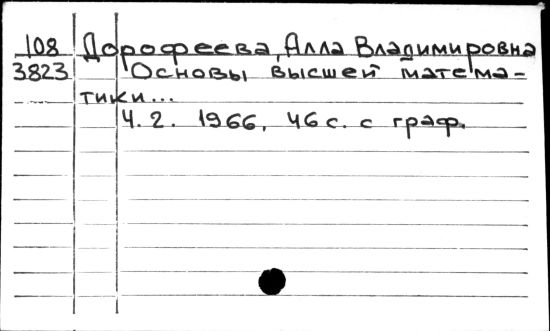 108 Дорофеева, Алла Владимировна
3823 Основы высшей матема-
тики...
Ч. 2. 1966, 46 с. с граф.